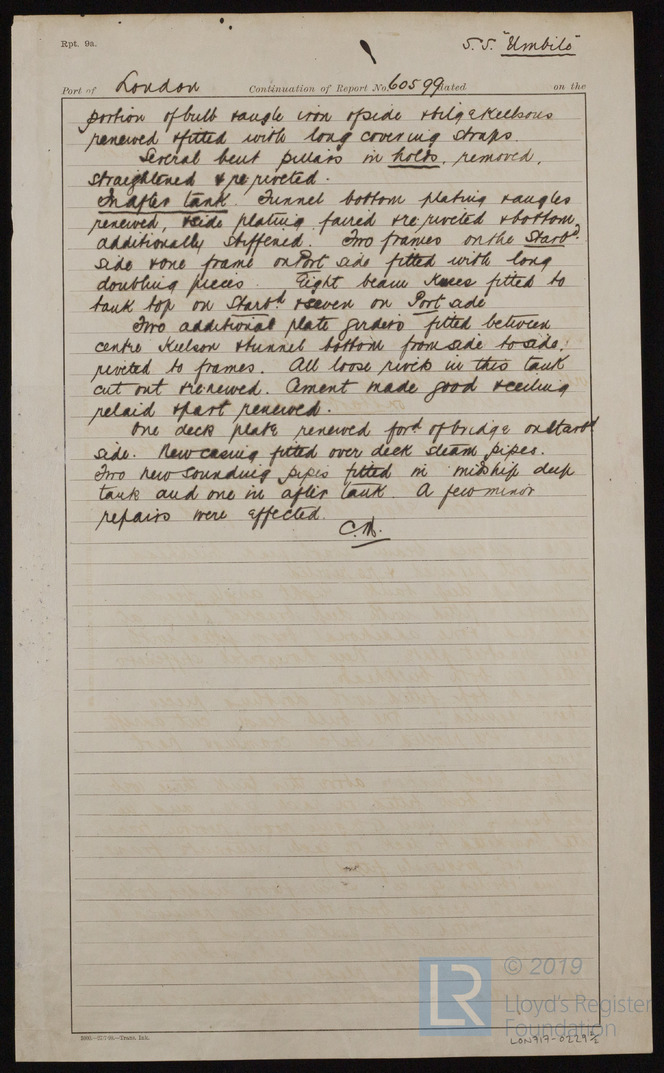 Rpt. 9a.
S.S. "Umbilo"
Port of London Continuation of Report No. 60599 dated on the
portion of bulb & angle iron of side & bilge keelsons
renewed & fitted with long covering straps.
Several bent pillars in holds, removed,
straightened & re riveted.
In after tank. Tunnel bottom plating & angles
renewed, & side plating faired & re riveted & bottom
additionally stiffened. Two frames on the Starbd
side & one frame on Port side fitted with long
doubling pieces. Eight beam knees fitted to
tank top on Starbd & seven on Port side
Two additional plate girders fitted between
centre keelson & tunnel bottom from side to side,
riveted to frames. All loose rivets in this tank
cut out & renewed. Cement made good & ceiling
relaid & part renewed.
One deck plate renewed ford of bridge on Starbd
side. New casing fitted over deck steam pipes.
Two new sounding pipes fitted in midship deep
tank and one in after tank. A few minor
repairs were effected.
© 2019
LR
Lloyd's Register
Foundation
LON717-0229